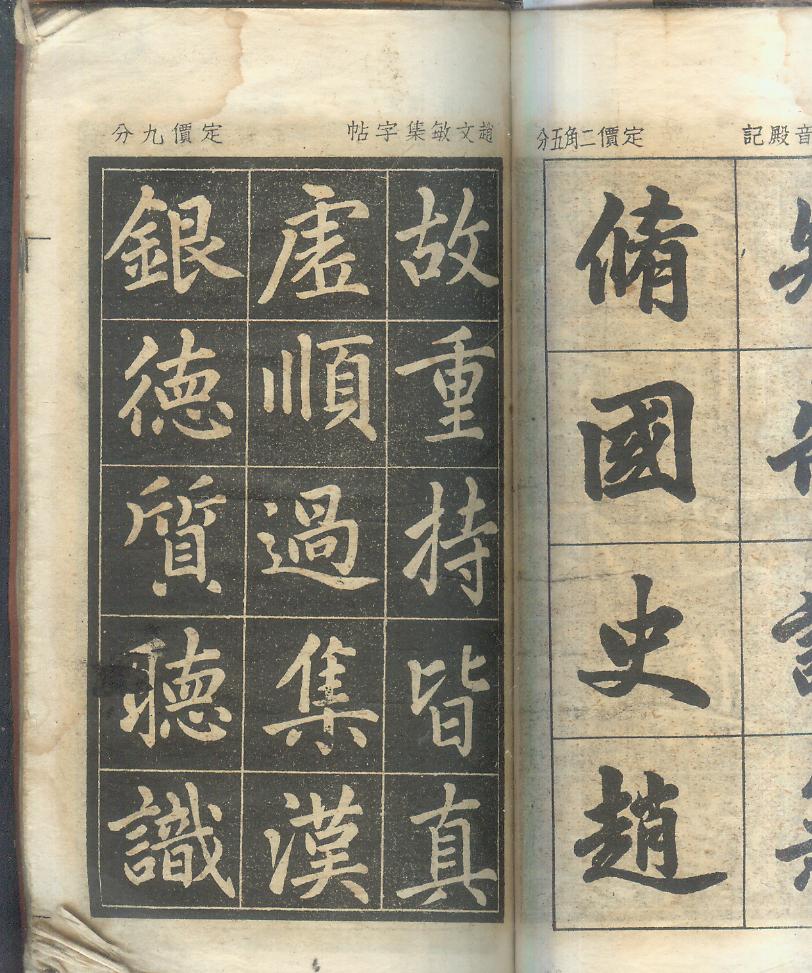 音殿記
定價二角五分
脩國史趙
趙文敏集字帖
定價九分
故重持皆真
虛順過集漢
銀德質聽識